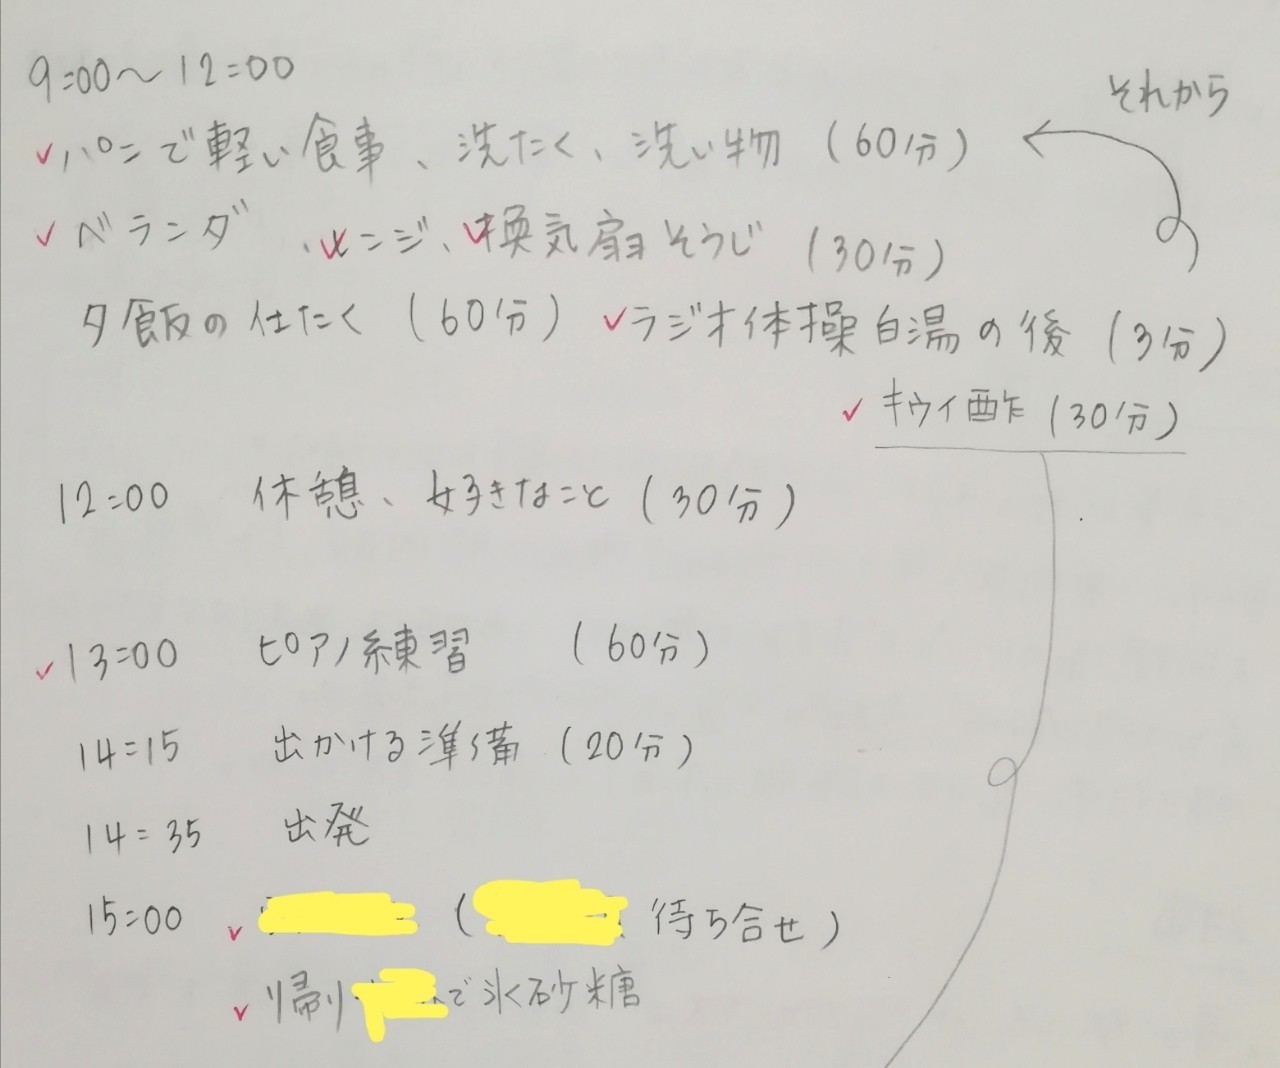 9:00〜12:00
それから
✓パンで軽い食事、洗たく、洗い物(60分)
✓ベランダ、✓レンジ、✓換気扇そうじ(30分)
夕飯の仕たく(60分) ✓ラジオ体操白湯の後(3分)
✓キウイ酢(30分)
12:00 休憩、好きなこと(30分)
✓13:00 ピアノ練習 (60分)
14:15 出かける準備(20分)
14:35 出発
15:00 ✓ ( 待ち合せ)
✓帰り で氷砂糖